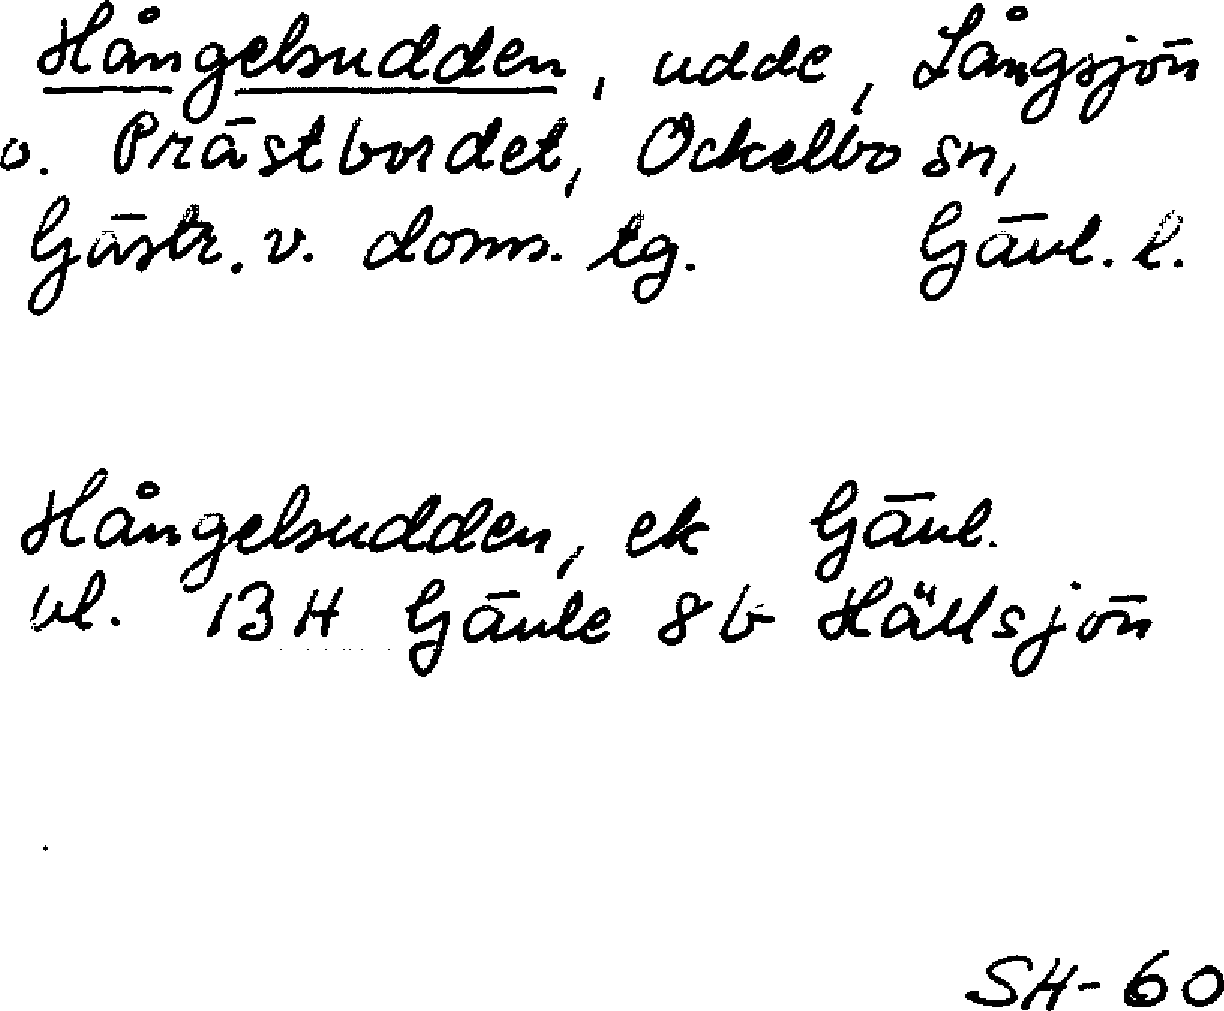 Hångelsudden, udde, Långsjön
o. Prästbordet, Ockelbo sn,
Gästr. v. doms. tg. Gävl. l.
Hångelsudden, ek Gävl.
bl. 13H Gävle 8b Hällsjön
SH-60